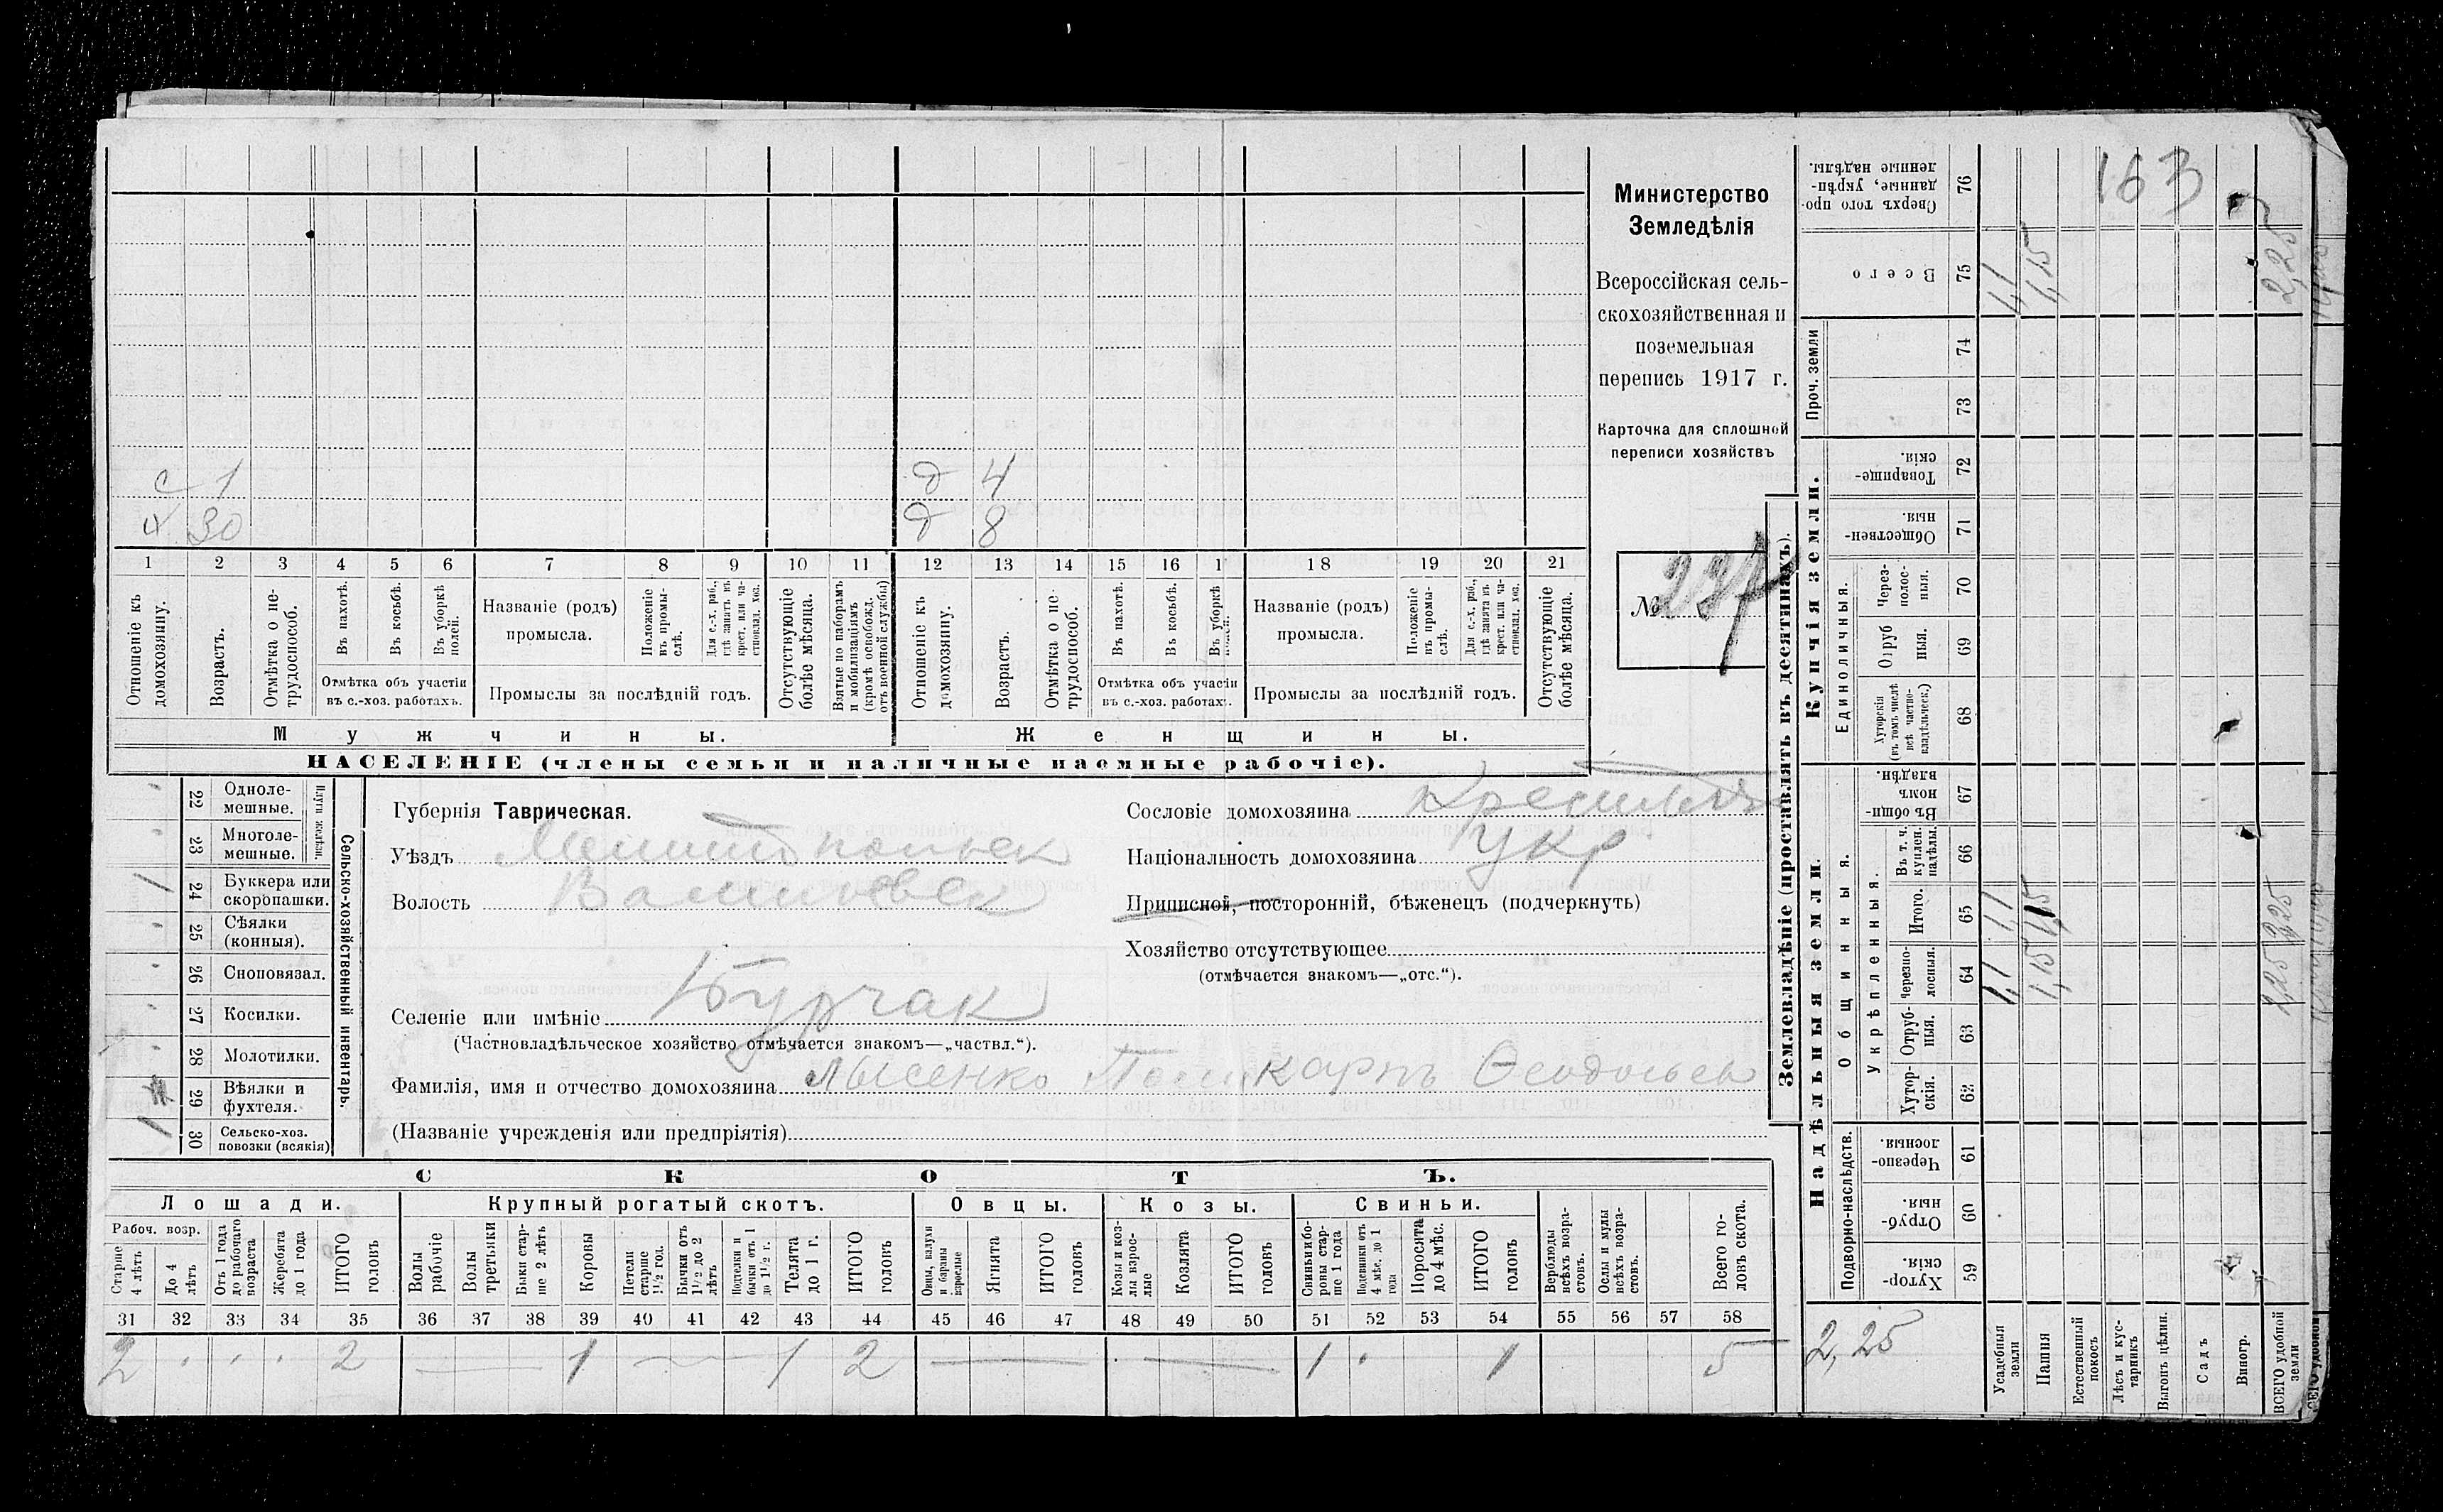 163
Министерство
Земледѣлія
Всероссійская сель-
скохозяйственная и
поземельная
перепись 1917 г.
Карточка для сплошной
переписи хозяйствъ
№ 237
с 1
х 30
д 4
д 8
1 2 3 4 5 6 7 8 9 10 11 12 13 14 15 16 1 18 19 20 21
Отношеніе къ домохозяину.
Возрастъ.
Отмѣтка о не-трудоспособ.
Въ пахотѣ.
Въ косьбѣ.
Въ уборкѣ полей.
Отмѣтка объ участіи
въ с.-хоз. работахъ.
Названіе (родъ)
промысла.
Положеніе въ промы-слѣ.
Для с.-х. раб., гдѣ занятъ въ крест. или ча-стновлад. хоз.
Промыслы за послѣдній годъ.
Отсутствующіе болѣе мѣсяца.
Взятые по наборамъ и мобилизаціямъ (кромѣ освобожд. отъ военной службы)
Отношеніе къ домохозяину.
Возрастъ.
Отмѣтка о не-трудоспособ.
Въ пахотѣ.
Въ косьбѣ.
Въ уборкѣ
Отмѣтка объ участіи
въ с.-хоз. работах.
Названіе (родъ)
промысла.
Положеніе въ промы-слѣ.
Для с.-х. раб., гдѣ занята въ крест. или ча-стновлад. хоз.
Промыслы за послѣдній годъ.
Отсутствующіе болѣе мѣсяца.
Мужчины.
Женщины.
НАСЕЛЕНІЕ (члены семьи и наличные наемные рабочіе).
Сельско-хозяйственный инвентарь.
Плуги желѣзн.
22 Одноле-мешные.
23 Многоле-мешные.
1 24 Буккера или скоропашки.
25 Сѣялки (конныя).
26 Сноповязал.
27 Косилки.
28 Молотилки.
29 Вѣялки и фухтеля.
1 30 Сельско-хоз. повозки (всякія)
Губернія Таврическая.
Уѣздъ Мелитопольск
Волость Васильевск
Селеніе или имѣніе Бурчак
(Частновладѣльческое хозяйство отмѣчается знакомъ—„частвл.“).
Фамилія, имя и отчество домохозяина Лысенко Поликарпъ Ѳеодосьев
(Названіе учрежденія или предпріятія)
Сословіе домохозяина Крестьян
Національность домохозяина Укр
Приписной, посторонній, бѣженецъ (подчеркнуть)
Хозяйство отсутствующее
(отмѣчается знакомъ—„отс.“).
СКОТЪ.
Лошади. Крупный рогатый скотъ. Овцы. Козы. Свиньи.
Рабоч. возр.
Старше 4 лѣтъ
До 4 лѣтъ
Отъ 1 года до рабочаго возраста
Жеребята до 1 года
ИТОГО головъ
Волы рабочіе
Волы третьяки
Быки стар-ше 2 лѣтъ
Коровы
Нетели старше 1½ год.
Бычки отъ 1½ до 2 лѣтъ
Подтелки и бычки отъ 1 до 1½ г.
Телята до 1 г.
ИТОГО головъ
Овцы, валухи и бараны взрослые
Ягнята
ИТОГО головъ
Козы и коз-лы взрос-лые
Козлята
ИТОГО головъ
Свиньи и бо-ровы стар-ше 1 года
Подсвинки отъ 4 мѣс. до 1 года
Поросята до 4 мѣс.
ИТОГО головъ
Верблюды всѣхъ возра-стовъ.
Ослы и мулы всѣхъ возра-стовъ.
Всего го-ловъ скота.
31 32 33 34 35 36 37 38 39 40 41 42 43 44 45 46 47 48 49 50 51 52 53 54 55 56 57 58
2 2 1 1 2 1 1 5
Землевладѣніе (проставлять въ десятинахъ).
Купчія земли.
Проч. земли
Единоличныя.
Сверхъ того про-данные, укрѣп-ленные надѣлы. 76
Всего 75
74
73
Товарище-скія. 72
Обществен-ныя. 71
Через-полос-ныя. 70
Отруб ныя. 69
Хуторскія (въ томъ числѣ всѣ частно-владѣльческ.) 68
Надѣльныя земли.
Общинныя.
Укрѣпленныя.
Въ общин-номъ владѣн. 67
Въ т. ч. куплен. надѣлы. 66
Итого. 65
Черезпо-лосныя. 64
Отруб-ныя. 63
Хутор-скія. 62
Подворно-наслѣдств.
Черезпо-лосныя. 61
Отруб-ныя. 60
Хутор-скія. 59
1,1 1,15 2,25
1,1 1,15 2,25
1,1 1,15 2,25
2,25
Усадебныя земли
Пашня
Естественный покосъ
Лѣсъ и кус-тарникъ
Выгонъ цѣлин.
Садъ
Виногр.
ВСЕГО удобной земли